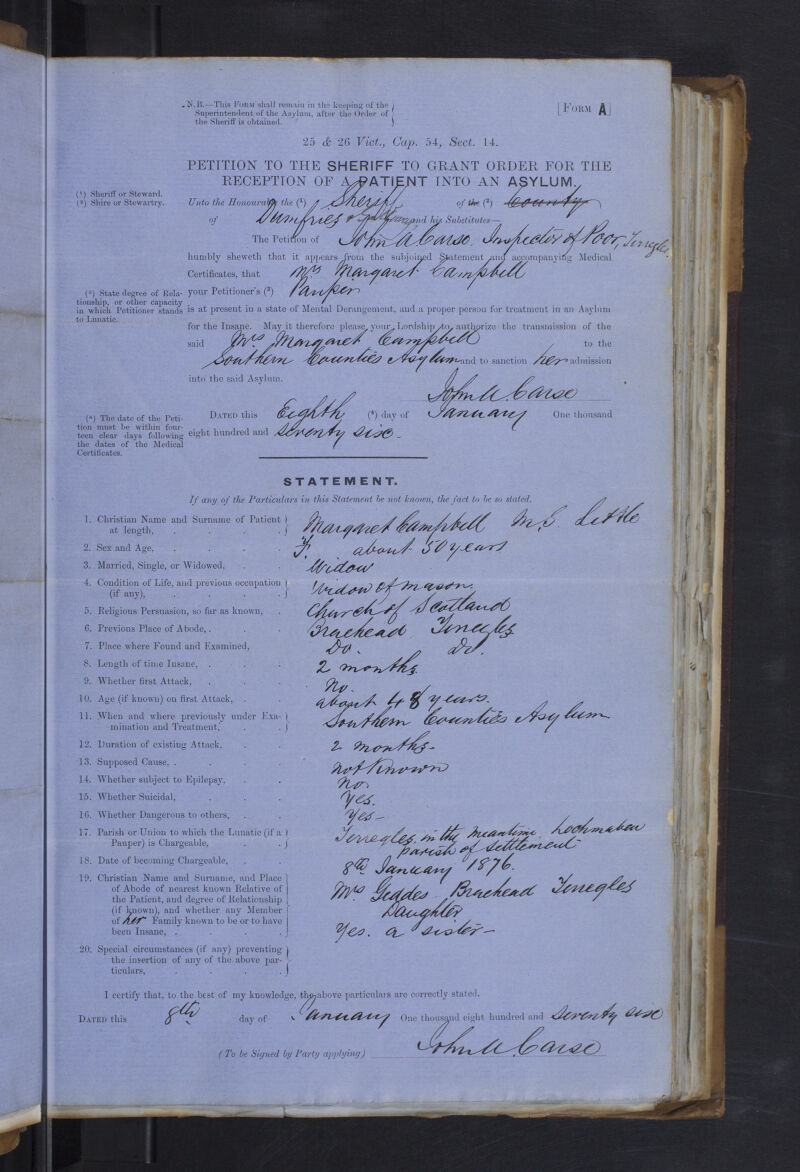 N.B.—This Form shall remain in the keeping of the
Superintendent of the Asylum, after the Order of
the Sheriff is obtained.
[Form A]
25 & 26 Vict., Cap. 54, Sect. 14.
PETITION TO THE SHERIFF TO GRANT ORDER FOR THE
RECEPTION OF A PATIENT INTO AN ASYLUM.
(¹) Sheriff or Steward.
(²) Shire or Stewartry.
Unto the Honourable the (¹) Sheriff of the (²) County
of Dumfries & Galloway and his Substitutes—
The Petition of John A Carse. Inspector of Poor, Terregles.
humbly sheweth that it appears from the subjoined Statement and accompanying Medical
Certificates, that Mrs Margaret Campbell
(³) State degree of Rela-
tionship, or other capacity
in which Petitioner stands
to Lunatic.
your Petitioner's (³) Pauper
is at present in a state of Mental Derangement, and a proper person for treatment in an Asylum
for the Insane. May it therefore please your Lordship to authorize the transmission of the
said Mrs Margaret Campbell to the
Southern Counties Asylum and to sanction her admission
into the said Asylum.
John A. Carse
(⁴) The date of the Peti-
tion must be within four-
teen clear days following
the dates of the Medical
Certificates.
Dated this Eighth (⁴) day of January One thousand
eight hundred and seventy six.
STATEMENT.
If any of the Particulars in this Statement be not known, the fact to be so stated.
1. Christian Name and Surname of Patient
at length, Margaret Campbell M.S. Little
2. Sex and Age, F. about 50 years
3. Married, Single, or Widowed, Widow
4. Condition of Life, and previous occupation
(if any), Widow of mason.
5. Religious Persuasion, so far as known, Church of Scotland
6. Previous Place of Abode, Braehead Terregles
7. Place where Found and Examined, Do. Do.
8. Length of time Insane, 2 months.
9. Whether first Attack, No.
10. Age (if known) on first Attack, about 48 years.
11. When and where previously under Exa-
mination and Treatment, Southern Counties Asylum
12. Duration of existing Attack, 2 months-
13. Supposed Cause, not Known
14. Whether subject to Epilepsy, No.
15. Whether Suicidal, Yes.
16. Whether Dangerous to others, Yes-
17. Parish or Union to which the Lunatic (if a
Pauper) is Chargeable, Terregles in the meantime. Lochmaben
parish of settlement
18. Date of becoming Chargeable, 8th January 1876.
19. Christian Name and Surname, and Place
of Abode of nearest known Relative of
the Patient, and degree of Relationship
(if known), and whether any Member
of her Family known to be or to have
been Insane,
Mrs Geddes Braehead Terregles
Daughter
Yes. a sister-
20. Special circumstances (if any) preventing
the insertion of any of the above par-
ticulars,
I certify that, to the best of my knowledge, the above particulars are correctly stated.
Dated this 8th day of January One thousand eight hundred and seventy six
(To be Signed by Party applying) John A. Carse